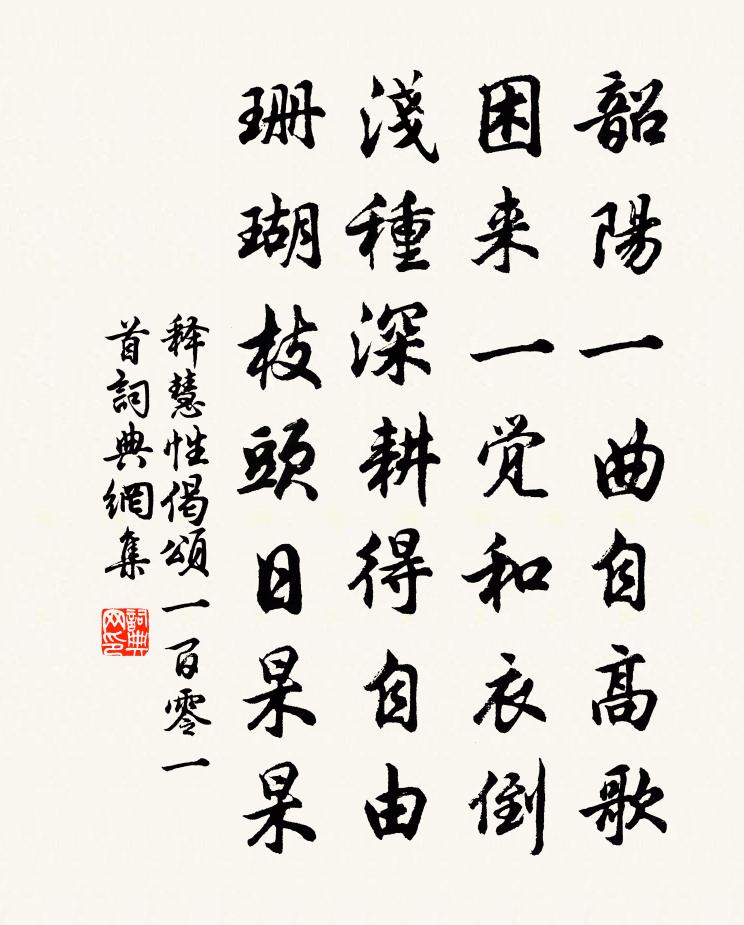 韶陽一曲自高歌
困来一觉和衣倒
淺種深耕得自由
珊瑚枝頭日杲杲
释慧性偈頌一百零一
首詞典網集
詞典网印